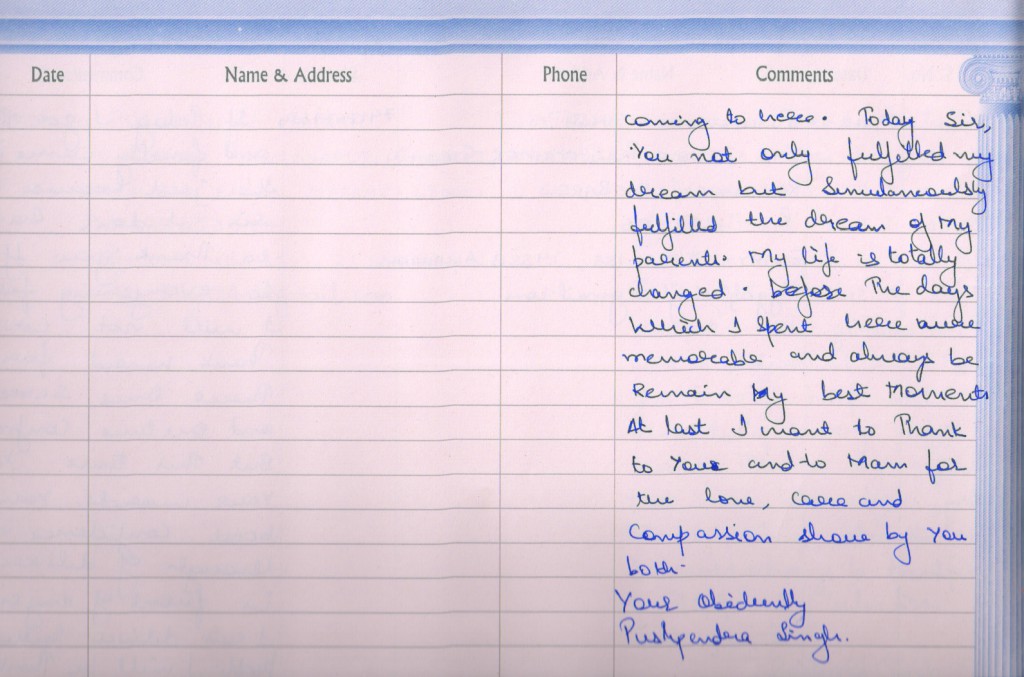 Date Name & Address Phone Comments
coming to here. Today Sir,
You not only fulfilled my
dream but Simultaneously
fulfilled the dream of my
parents. My life is totally
changed. before The days
which I spent here
memorable and always be
Remain My best Moments
At last I want to Thank
to Your and to Mam for
the love, care and
Compassion by You
both.
Your Obediently
Pushpendra Singh.